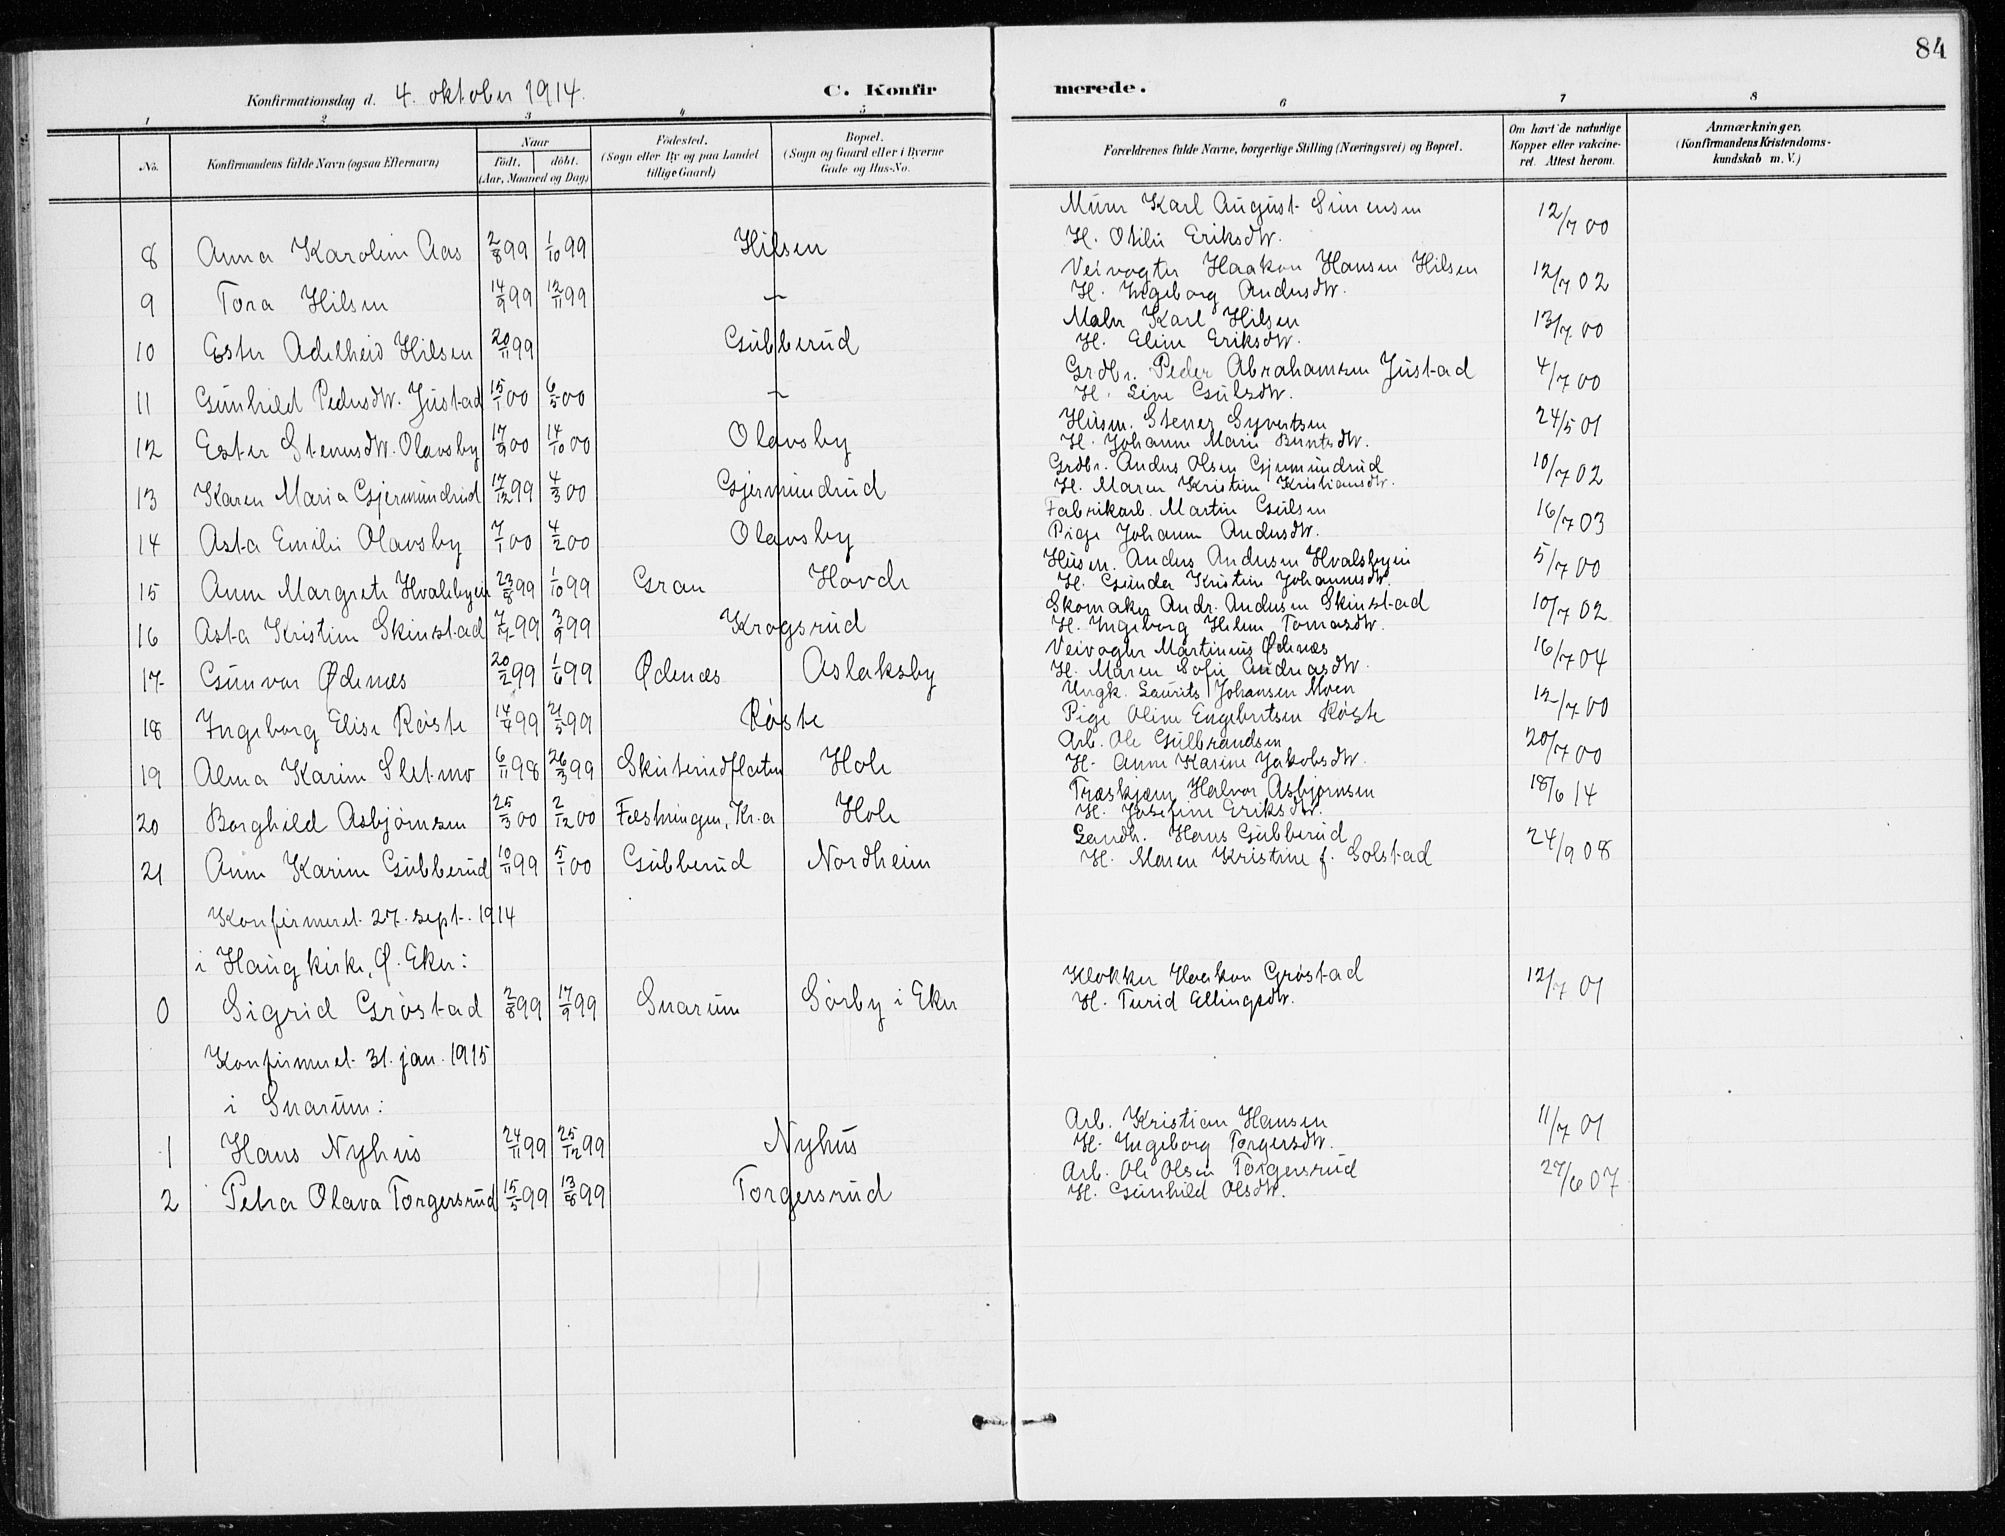 84
Konfirmationsdag d. 4. oktober 1914.
C. Konfirmerede.
1 2 3 4 5 6 7 8
No.
Konfirmandens fulde Navn (ogsaa Efternavn)
Naar
födt. döbt.
(Aar, Maaned og Dag)
Födested.
(Sogn eller By og paa Landet
tillige Gaard)
Bopæl.
(Sogn og Gaard eller i Byerne
Gade og Hus-No.
Forældrenes fulde Navne, borgerlige Stilling (Næringsvei) og Bopæl.
Om havt de naturlige
Kopper eller vakcine-
ret. Attest herom.
Anmærkninger.
(Konfirmandens Kristendoms-
kundskab m. V.)
8 Anna Karoline Aas 2/8 99 1/10 99 Hilsen Murer Karl August Simensen 12/7 00
H. Otilie Eriksdtr.
9 Tora Hilsen 14/9 99 12/11 99 — Veivogter Haakon Hansen Hilsen 12/7 02
H. Ingeborg Andersdtr.
10 Ester Adelheid Hilsen 20/11 99 Gubberud Maler Karl Hilsen 13/7 00
H. Eline Eriksdtr.
11 Gunhild Pedersdtr. Justad 15/1 00 6/5 00 — Grdbr. Peder Abrahamsen Justad 4/7 00
H. Live Gulsdtr.
12 Ester Stenersdtr. Olavsby 17/9 00 14/10 00 Olavsby Husm. Stener Syvertsen 24/5 01
H. Johanne Marie Berntsdtr.
13 Karen Maria Gjermundrud 17/12 99 4/3 00 Gjermundrud Grdbr. Anders Olsen Gjermundrud 10/7 02
H. Maren Kristine Kristiansdtr.
14 Asta Emilie Olavsby 7/1 00 4/2 00 Olavsby Fabrikarb. Martin Gulsen 16/7 03
Pige Johanne Andersdtr.
15 Anne Margrete Hvalsbyen 23/8 99 1/10 99 Gran Hovde Husm. Anders Andersen Hvalsbyen 5/7 00
H. Gunda Kristine Johannesdtr.
16 Asta Kristine Skinstad 7/7 99 3/9 99 Krogsrud Skomaker Andr. Andersen Skinstad 10/7 02
H. Ingeborg Helene Tomasdtr.
17 Gunvor Ødenæs 20/2 99 1/6 99 Ødenæs Aslaksby Veivogter Martinius Ødenæs 16/7 04
H. Maren Sofie Andreasdtr.
18 Ingeborg Elise Røste 14/4 99 21/5 99 Røste Ungk. Laurits Johansen Moen 12/7 00
Pige Oline Engebritsen Røste
19 Alma Karine Sletmo 6/11 98 26/3 99 Skuterudflaten Hole Arb. Ole Gulbrandsen 20/7 00
H. Anne Karine Jakobsdtr.
20 Borghild Asbjørnsen 25/3 00 2/12 00 Fæstningen, Kr.a Hole Træskjærer Halvor Asbjørnsen 18/6 14
H. Josefine Eriksdtr.
21 Anne Karine Gubberud 10/11 99 5/1 00 Gubberud Nordheim Landh. Hans Gubberud 24/9 08
H. Maren Kristine f. Solstad
Konfirmeret 27. sept. 1914
i Haug kirke, Ø. Eker:
0 Sigrid Grøstad 2/8 99 17/9 99 Snarum Sørby i Eker Klokker Haakon Grøstad 12/7 01
H. Turid Ellingsdtr.
Konfirmeret 31. jan. 1915
i Snarum:
1 Hans Nyhus 24/11 99 25/12 99 Nyhus Arb. Kristian Hansen 11/7 01
H. Ingeborg Torgersdtr.
2 Petra Olava Torgersrud 15/5 99 13/8 99 Torgersrud Arb. Ole Olsen Torgersrud 27/6 07
H. Gunhild Olsdtr.